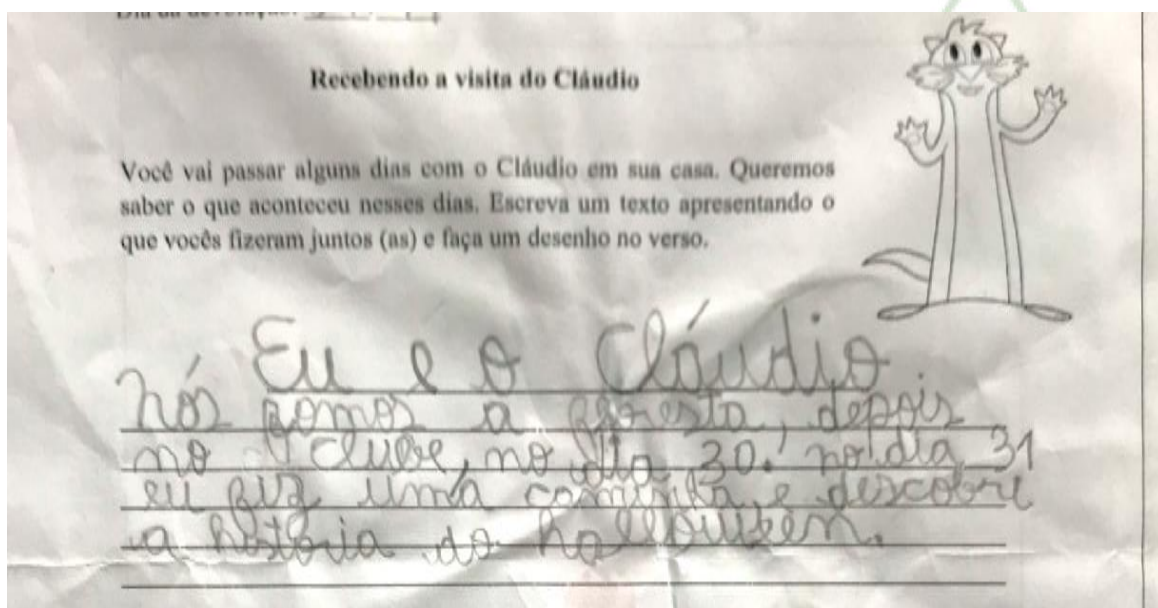 Recebendo a visita do Cláudio
Você vai passar alguns dias com o Cláudio em sua casa. Queremos
saber o que aconteceu nesses dias. Escreva um texto apresentando o
que vocês fizeram juntos (as) e faça um desenho no verso.
Eu e o Cláudio
Nós fomos a floresta, depois
no clube, no dia 30. no dia 31
eu fiz uma comidinha e descobri
a história do